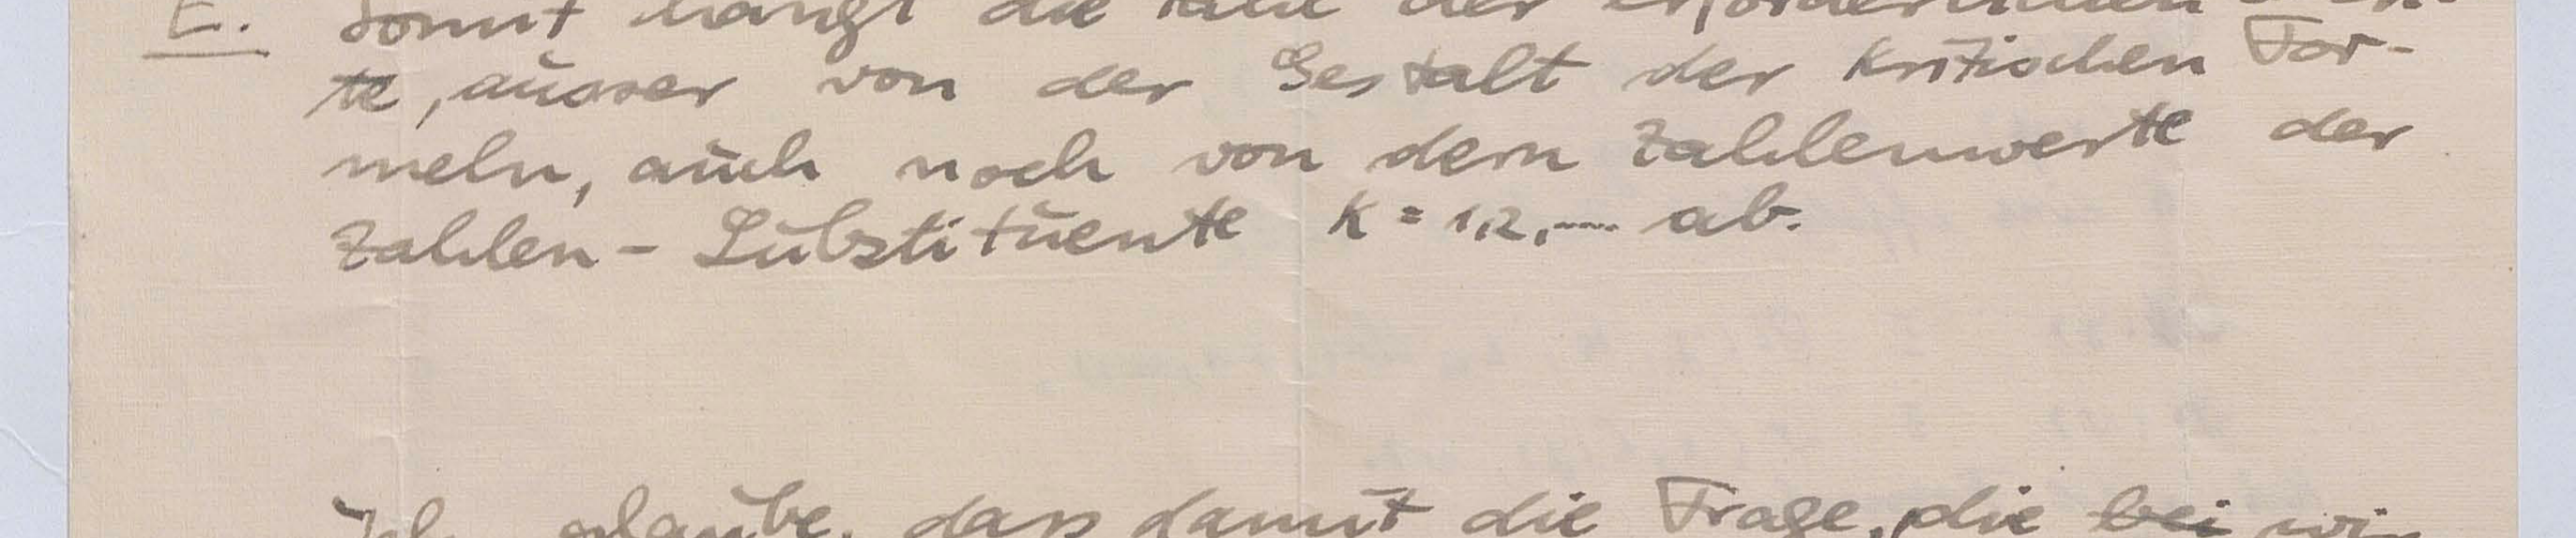 E. Somit hängt die Zahl der erforderlichen
te, ausser von der Gestalt der kritischen For-
meln, auch noch von dem Zahlenwerte der
Zahlen-Substituente K = 1,2,.... ab.
Ich glaube, dass damit die Frage, die bei wir